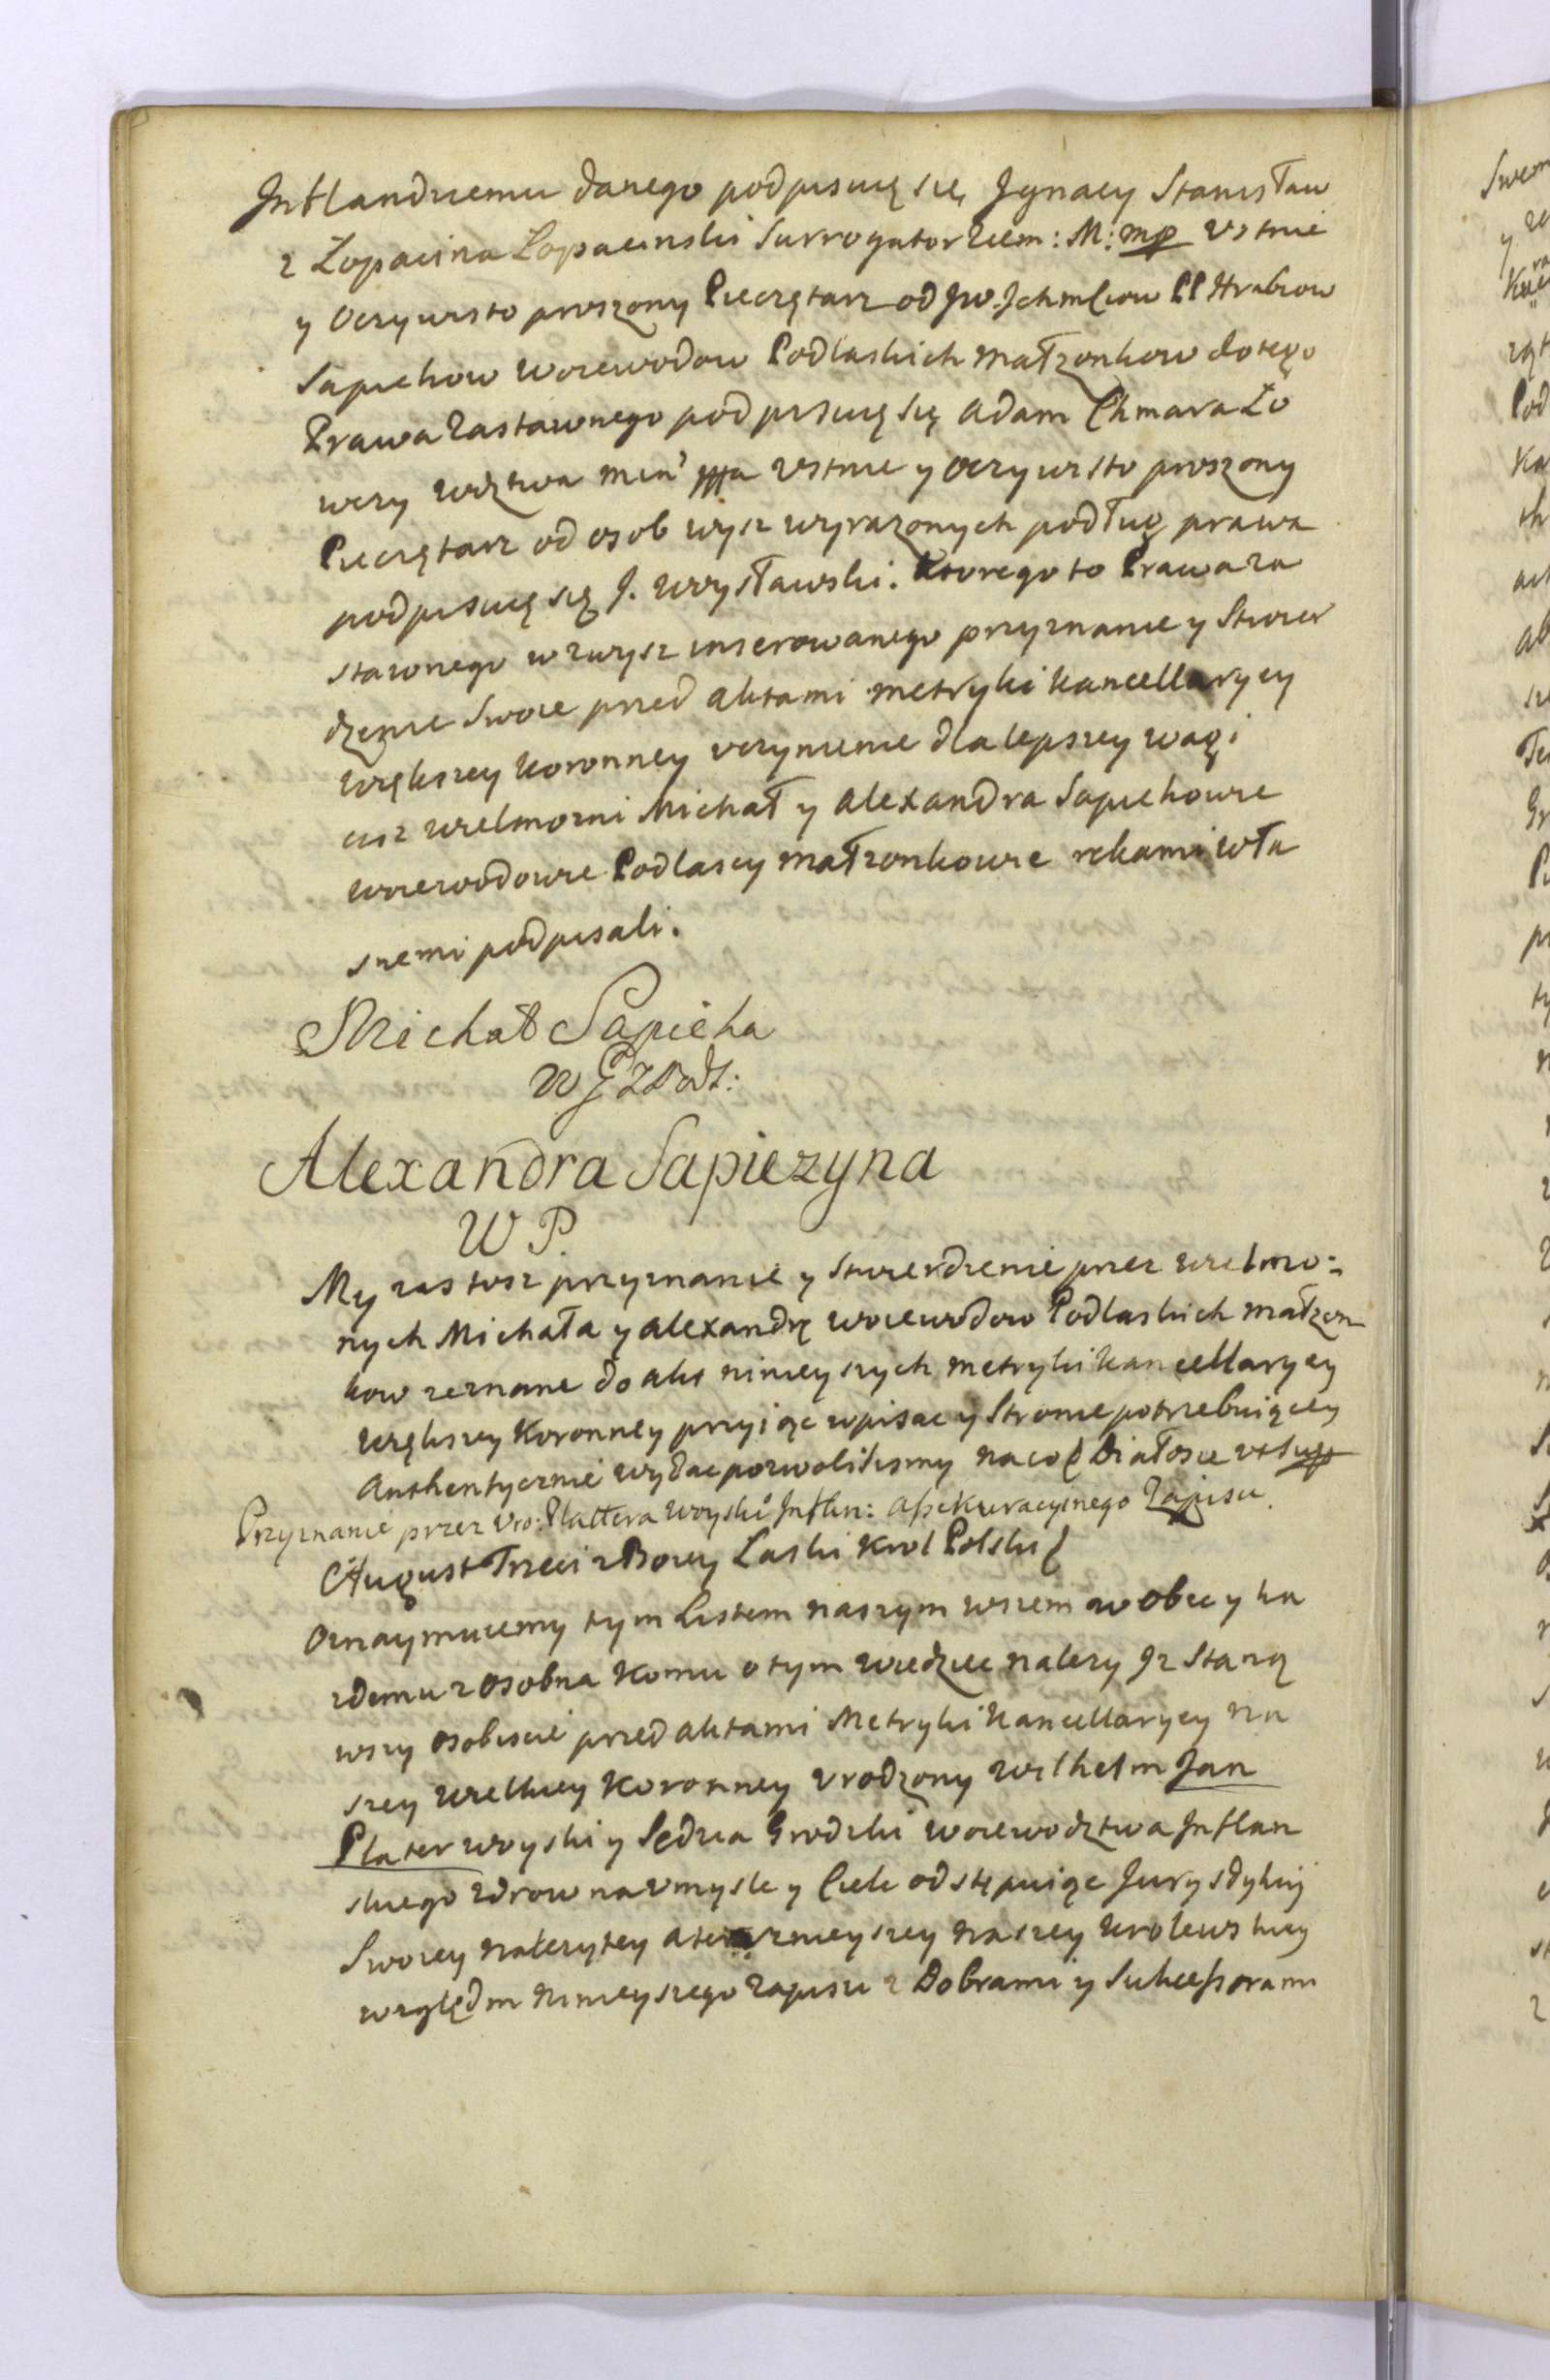 Inflandziemu danego podpisuię się Jgnacy Stanisław
z Łopacina Łopacinski Surrogator Ziem: M: mp Vstnie
y Oczywisto proszony Pieczętarz od Jw. Ichmciow PP Hrabiow
Sapiehow woiewodow Podlaskich małżonkow do tego
Prawa Zastawnego podpisuię się Adam Chmara Ło
wczy wdztwa Min' Vstnie y Oczywisto proszony
Pieczętarz od osob wysz wyrazonych podług prawa
podpisuię się J. Woysławski. Ktorego to Prawa za
stawnego wzwysz inserowanego przyznanie y Stwier
dzenie Swoie przed Aktami Metryki Kancellaryey
Większey Koronney vczynienie dla lepszey wagi
ciż wielmozni Michał y Alexandra Sapiehowie
woiewodowie Podlascy małżonkowie rękami wła
snemi podpisali.
Michał Sapieha
Alexandra Sapiezyna
W P.
My zas tosz przyznanie y Stwierdzenie przez wielmo:
nych Michała y Alexandrę woiewodow Podlaskich małżon
kow zeznane do Akt ninieyszych Metryki Kancellaryey
większey Koronney przyiąc wpisac y Stronie potrzebuiącey
Authentycznie wydac pozwolilismy na co Działosie vt supp
Przyznanie przez Vro: Plattera Woyski Inflan: Assekuracyinego Zapisu.
August Trzeci z Bozey Laski Krol Polski
Oznaymuiemy tym Listem naszym wszem w obec y ka
zdemu z osobna komu o tym wiedziec nalezy Iz Staną
wszy osobiscie przed Aktami Metryki Kancellaryey na
szey wielkiey Koronney Vrodzony Wilhelm Jan
Plater woyski y Sędzia Grodzki woiewodztwa Inflan
skiego zdrow na Vmysle y Ciele odstępuiąc Jurysdykcij
Swoiey nalezytey a teraznieyszey naszey Krolewskiey
względm ninieyszego Zapisu z Dobrami y Sukcessorami